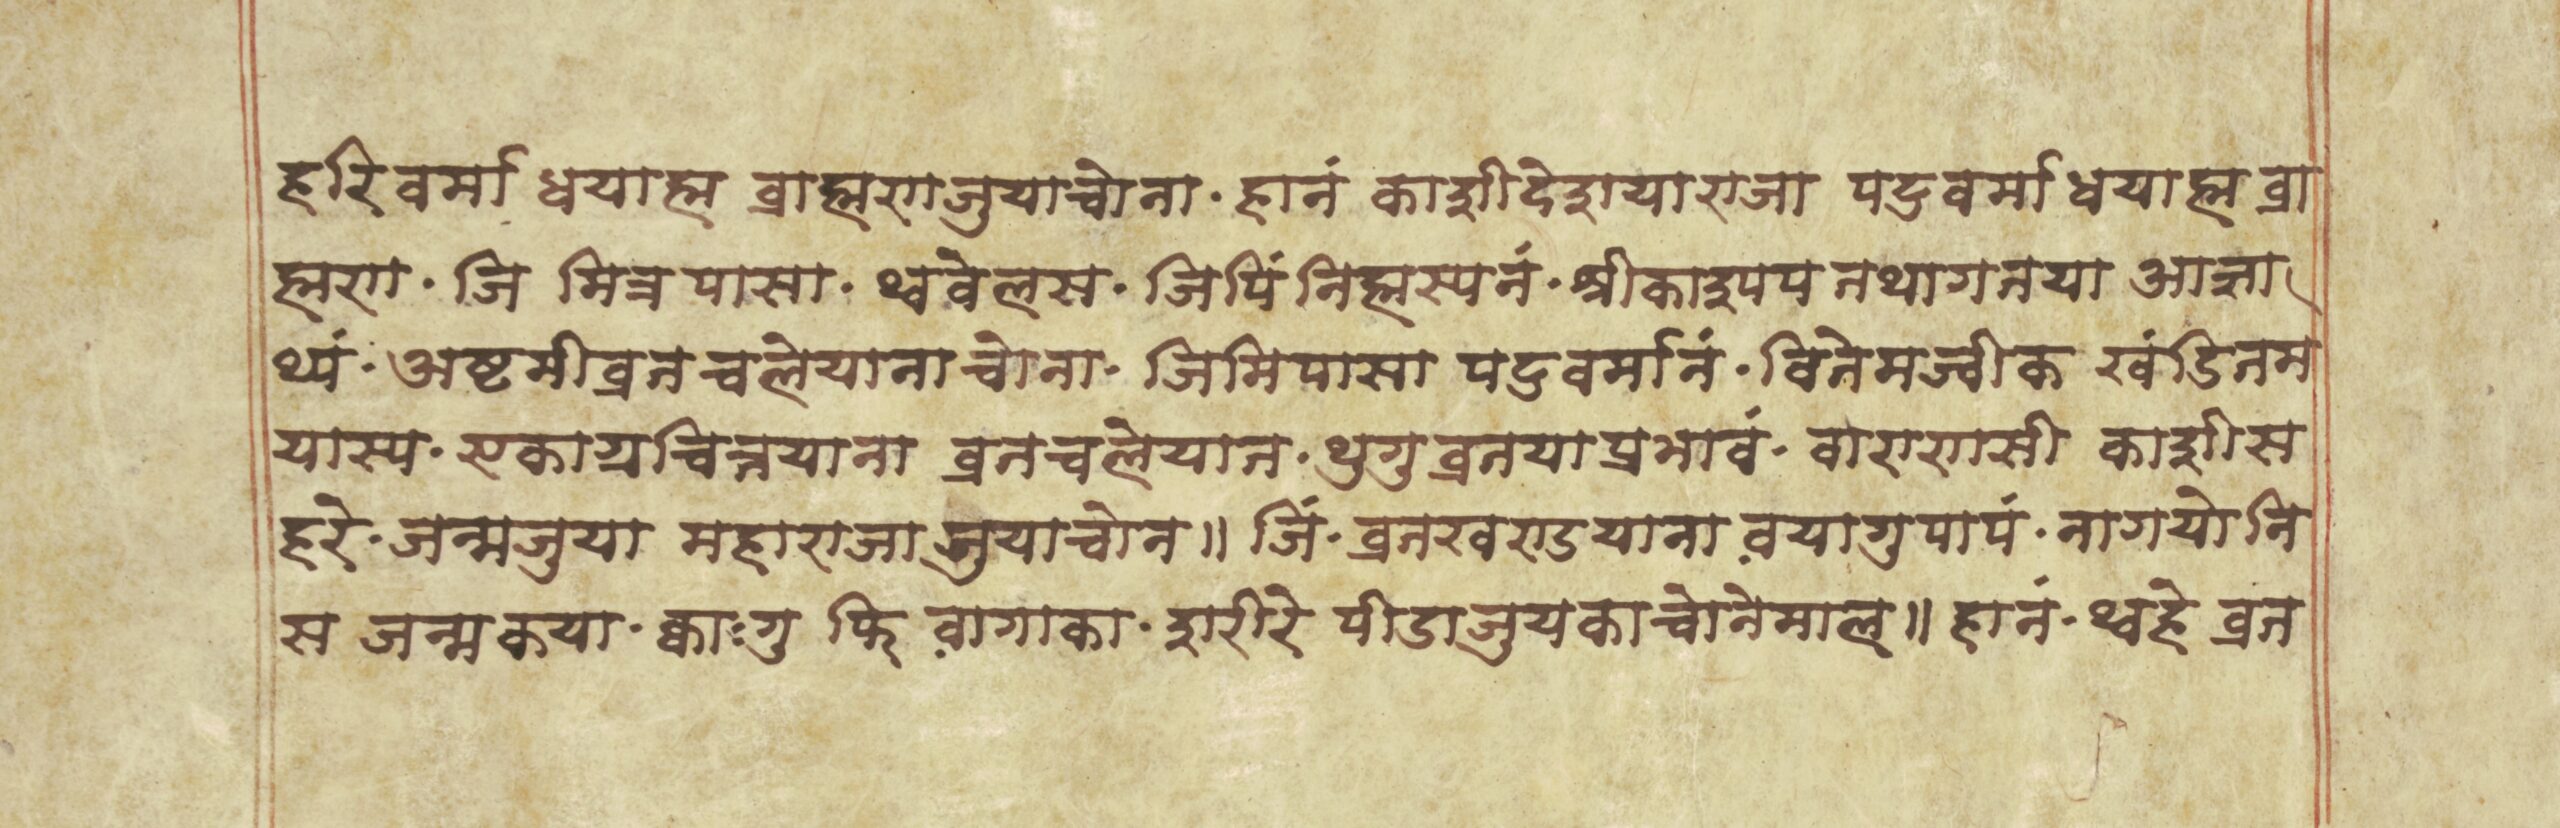 हरिवर्मा धयाह्म ब्राह्मणजुयाच्वोना· हानं काशीदेशयाराजा पद्रुवर्माधयाह्म ब्रा
ह्मण· जि मित्रपासा· थ्ववेलस· जिपिंनिह्मस्यनं· श्रीकाश्यपपतथागतया आज्ञा
थ्यं· अष्टमीव्रतचलेयानाच्वोना· जिमिपासा पद्रुवर्मानं· वितेमज्वीक खंडितम
यास्य· एकाग्रचित्तयाना व्रतचलेयात· थुगुव्रतयाप्रभावं· वाराणसी काशीस
हरे· जन्मजुया महाराजाजुयाच्वोन॥ जिं· व्रतखण्डयाना व़यागुपापं· नागयोनि
स जन्मकया· क्वाःगु फि व़ागाका· शरीरे पीडाजुयकाच्वोनेमाल॥ हानं· थ्वहे व्रत